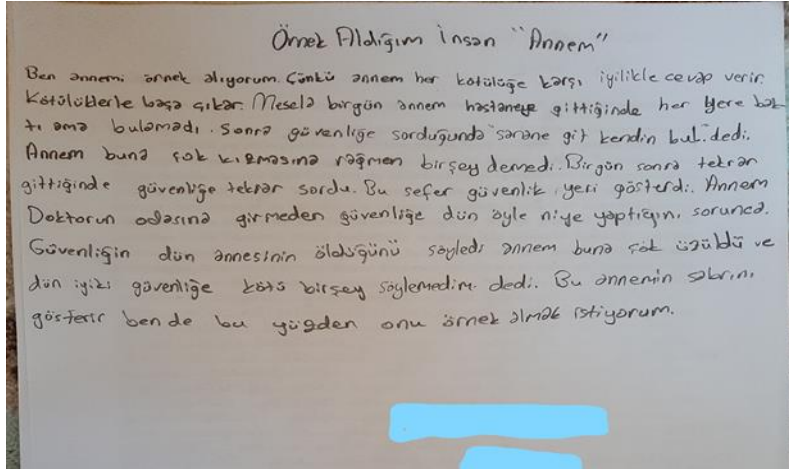 Örnek Aldığım İnsan "Annem"
Ben annemi örnek alıyorum. Çünkü annem her kötülüğe karşı iyilikle cevap verir.
Kötülüklerle başa çıkar. Mesela birgün annem hastaneye gittiğinde her yere bak
tı ama bulamadı. Sonra güvenliğe sorduğunda "sanane git kendin bul." dedi.
Annem buna çok kızmasına rağmen birşey demedi. Birgün sonra tekrar
gittiğinde güvenliğe tekrar sordu. Bu sefer güvenlik yeri gösterdi. Annem
Doktorun odasına girmeden güvenliğe dün öyle niye yaptığını sorunca.
Güvenliğin dün annesinin öldüğünü söyledi annem buna çok üzüldü ve
dün iyiki güvenliğe kötü birşey söylemedim dedi. Bu annemin sabrını
gösterir ben de bu yüzden onu örnek almak istiyorum.